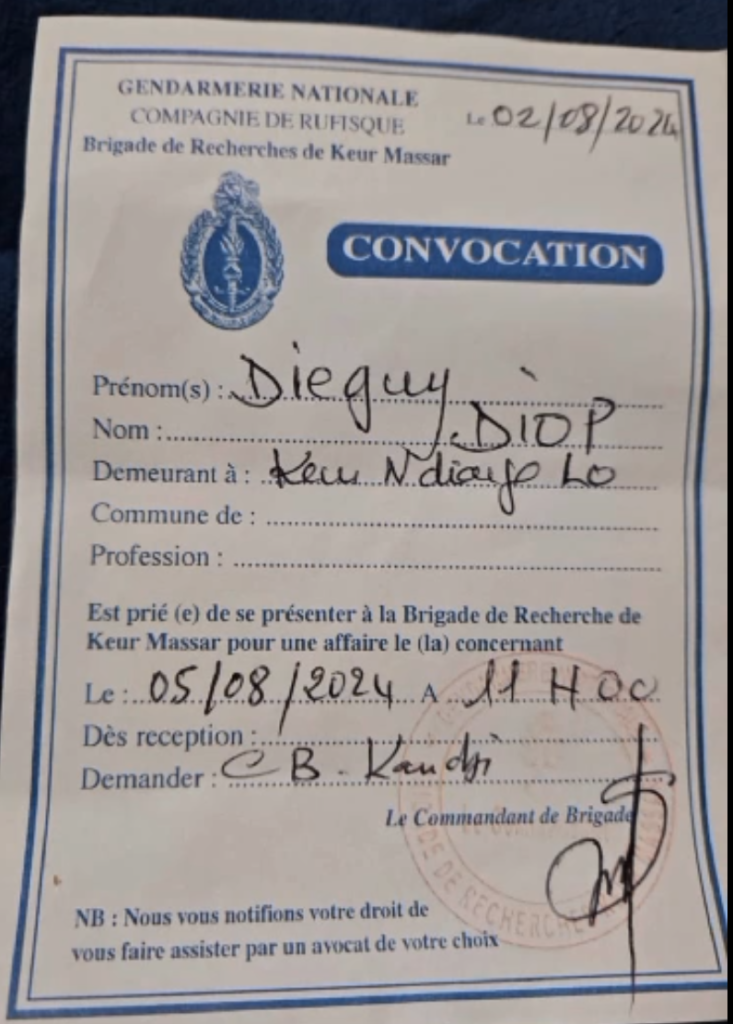 GENDARMERIE NATIONALE
COMPAGNIE DE RUFISQUE
Brigade de Recherches de Keur Massar
Le 02/08/2024
CONVOCATION
Prénom(s) : Dieguy
Nom : DIOP
Demeurant à : Keur Ndiaye LO
Commune de :
Profession :
Est prié (e) de se présenter à la Brigade de Recherche de
Keur Massar pour une affaire le (la) concernant
Le : 05/08/2024 A 11 H 00
Dès reception :
Demander : CB. Kandji
Le Commandant de Brigade
DE RECHERCHE
NB : Nous vous notifions votre droit de
vous faire assister par un avocat de votre choix